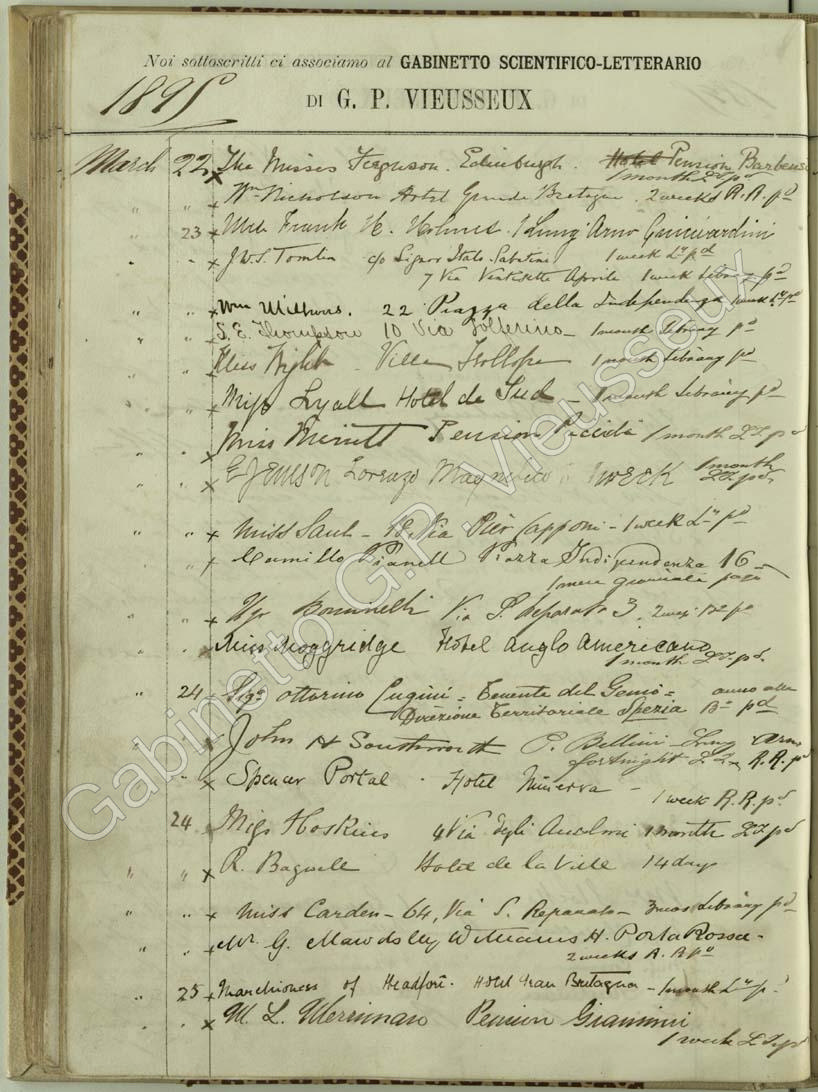 Noi sottoscritti ci associamo al GABINETTO SCIENTIFICO-LETTERARIO
1895
DI G. P. VIEUSSEUX
March 22 x The Misses Ferguson. Edinburgh. Hotel Pension Barbensi
1 month pd
" " x Wm Nicholson Hotel Grande Bretagne. 2 weeks R.R. pd
" 23 x Frank H. Holmes. 1 Lung'Arno Guicciardini
" " x J.W.S. Tomlin c/o Signor Italo Sabatini 1 week Ly pd
7 Via Ventisette Aprile 1 week Library pd
" " x Wm 22 Piazza della Independenza 1 week Ly pd
" " S. E. Thompson 10 Via 1 month Library pd
" " Miss Wight - Villa Trollope 1 month Library pd
" " x Miss Lyall Hotel de Sud - 1 month Library pd
" " x Miss Merritt Pension Piccioli 1 month pd
" " x E Jemison Lorenzo Magnifico 1 WEEK 1 month
pd
" " x Miss Saul - 18, Via Pier Capponi - 1 week Ly pd
" " x Camillo Pianell Piazza Indipendenza 16 -
1 mese giornali pago
" " x Via S. Reparata 3.
" " x Miss Moggridge Hotel Anglo Americano
1 month pd.
" 24 - Sigr Ottorino Eugini = Tenente del Genio = anno
Direzione Territoriale Spezia pd
" " x John H Southworth P. Bellini Lung Arno
fortnight R.R. pd
" " x Spencer Portal . Hotel Minerva -
1 week R.R. pd.
24 x Miss Hoskins 4 Via degli 1 month pd
" " x R. Bagnell Hotel de la Ville 14 days
" " x Miss Carden - 64, Via S. Reparata - 3 mos Library pd
" " x Mr. G. Mawdsley Williams H. Porta Rossa -
2 weeks R. R pd
" 25 x Marchioness of Headfort. Hotel Gran Bretagna - 1 month Ly pd
" " x M. L. Merriman Pension Giannini
1 week pd
Gabinetto G.P. Vieusseux